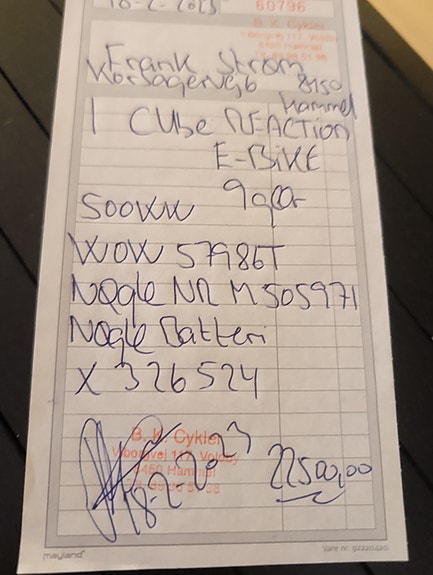 18-2-2023
60796
B. K. Cykler
Viborgvej 117, Voldby
8450 Hammel
Frank Strøm
Vorsagervej 6 8450
Hammel
1 CUBE REACTION
E-BIKE
500WW 9 gear
WOW 57986T
Nøgle NR M505971
Nøgle Batteri
X 326524
B. K. Cykler
Viborgvej 117, Voldby
8450 Hammel
18-2-2023
22500,00
mayland
Vare nr.